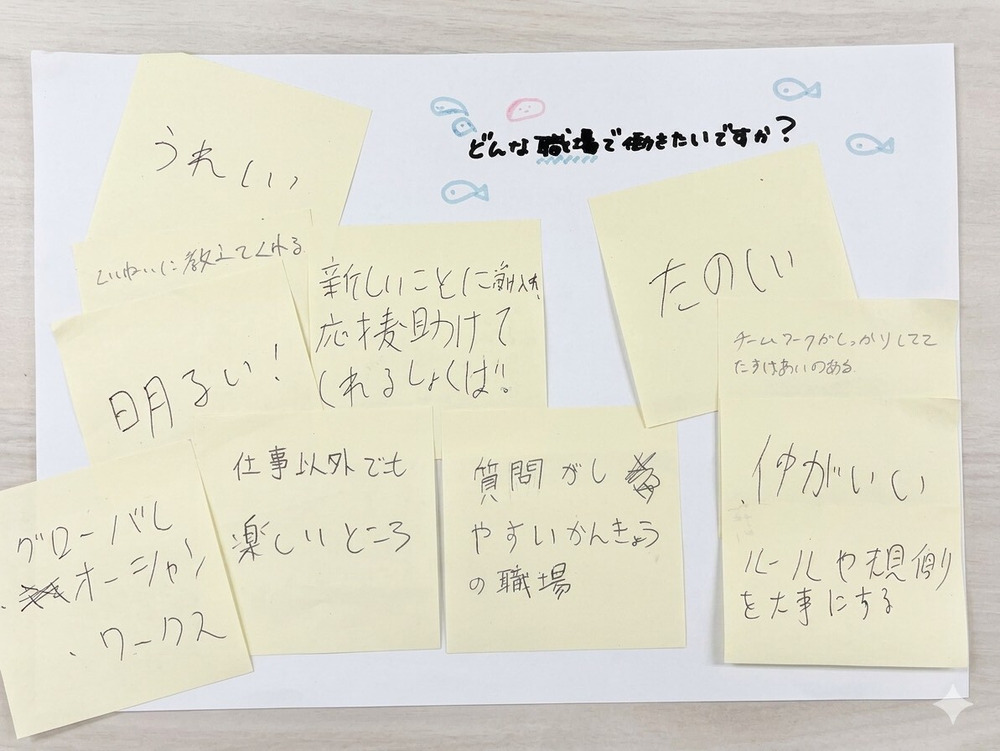 どんな職場で働きたいですか?
うれしい
ていねいに教えてくれる
明るい!
新しいことに
応援助けて
くれるしょくば!!
たのしい
チームワークがしっかりしてて
たすけあいのある
仲がいい
ルールや規則
を大事にする
グローバル
オーシャン
ワークス
仕事以外でも
楽しいところ
質問がし
やすいかんきょう
の職場